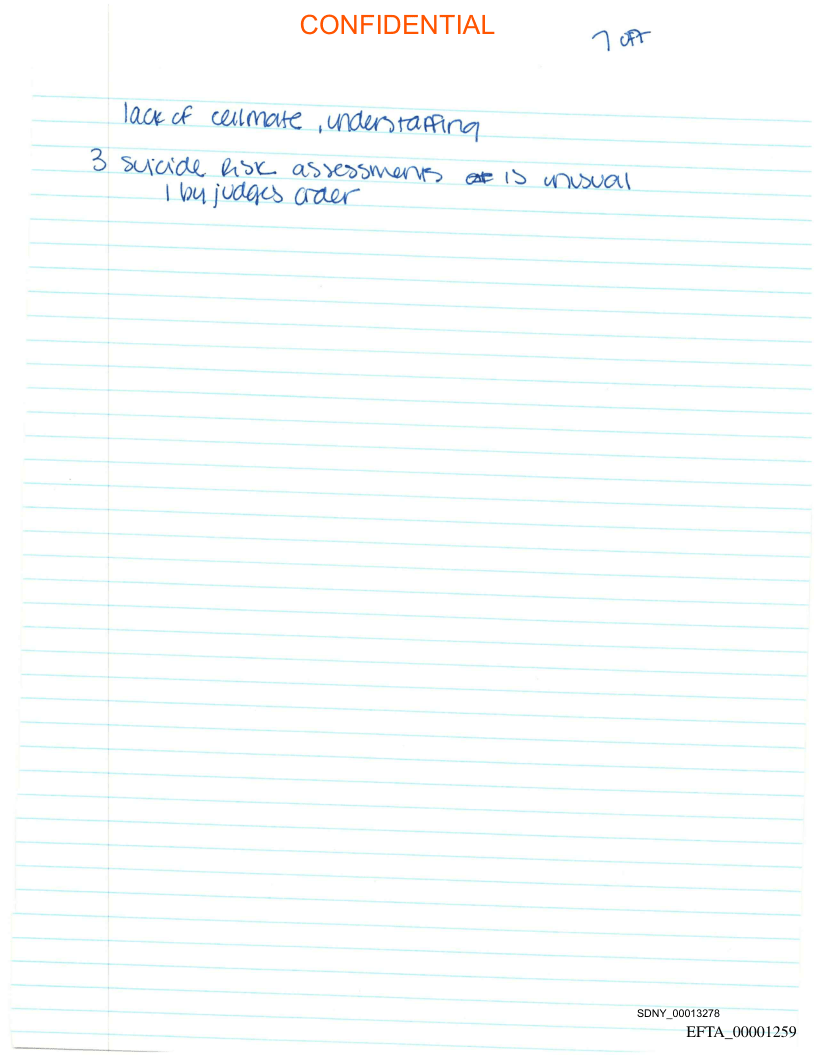 CONFIDENTIAL
7 of 7
lack of cellmate, understaffing
3 suicide risk assessments is unusual
1 by judges order
SDNY_00013278
EFTA_00001259